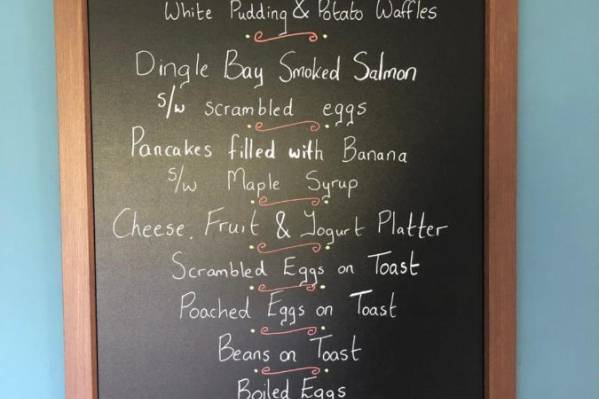 White Pudding & Potato Waffles
Dingle Bay Smoked Salmon
s/w scrambled eggs
Pancakes filled with Banana
s/w Maple Syrup
Cheese, Fruit & Yogurt Platter
Scrambled Eggs on Toast
Poached Eggs on Toast
Beans on Toast
Boiled Eggs